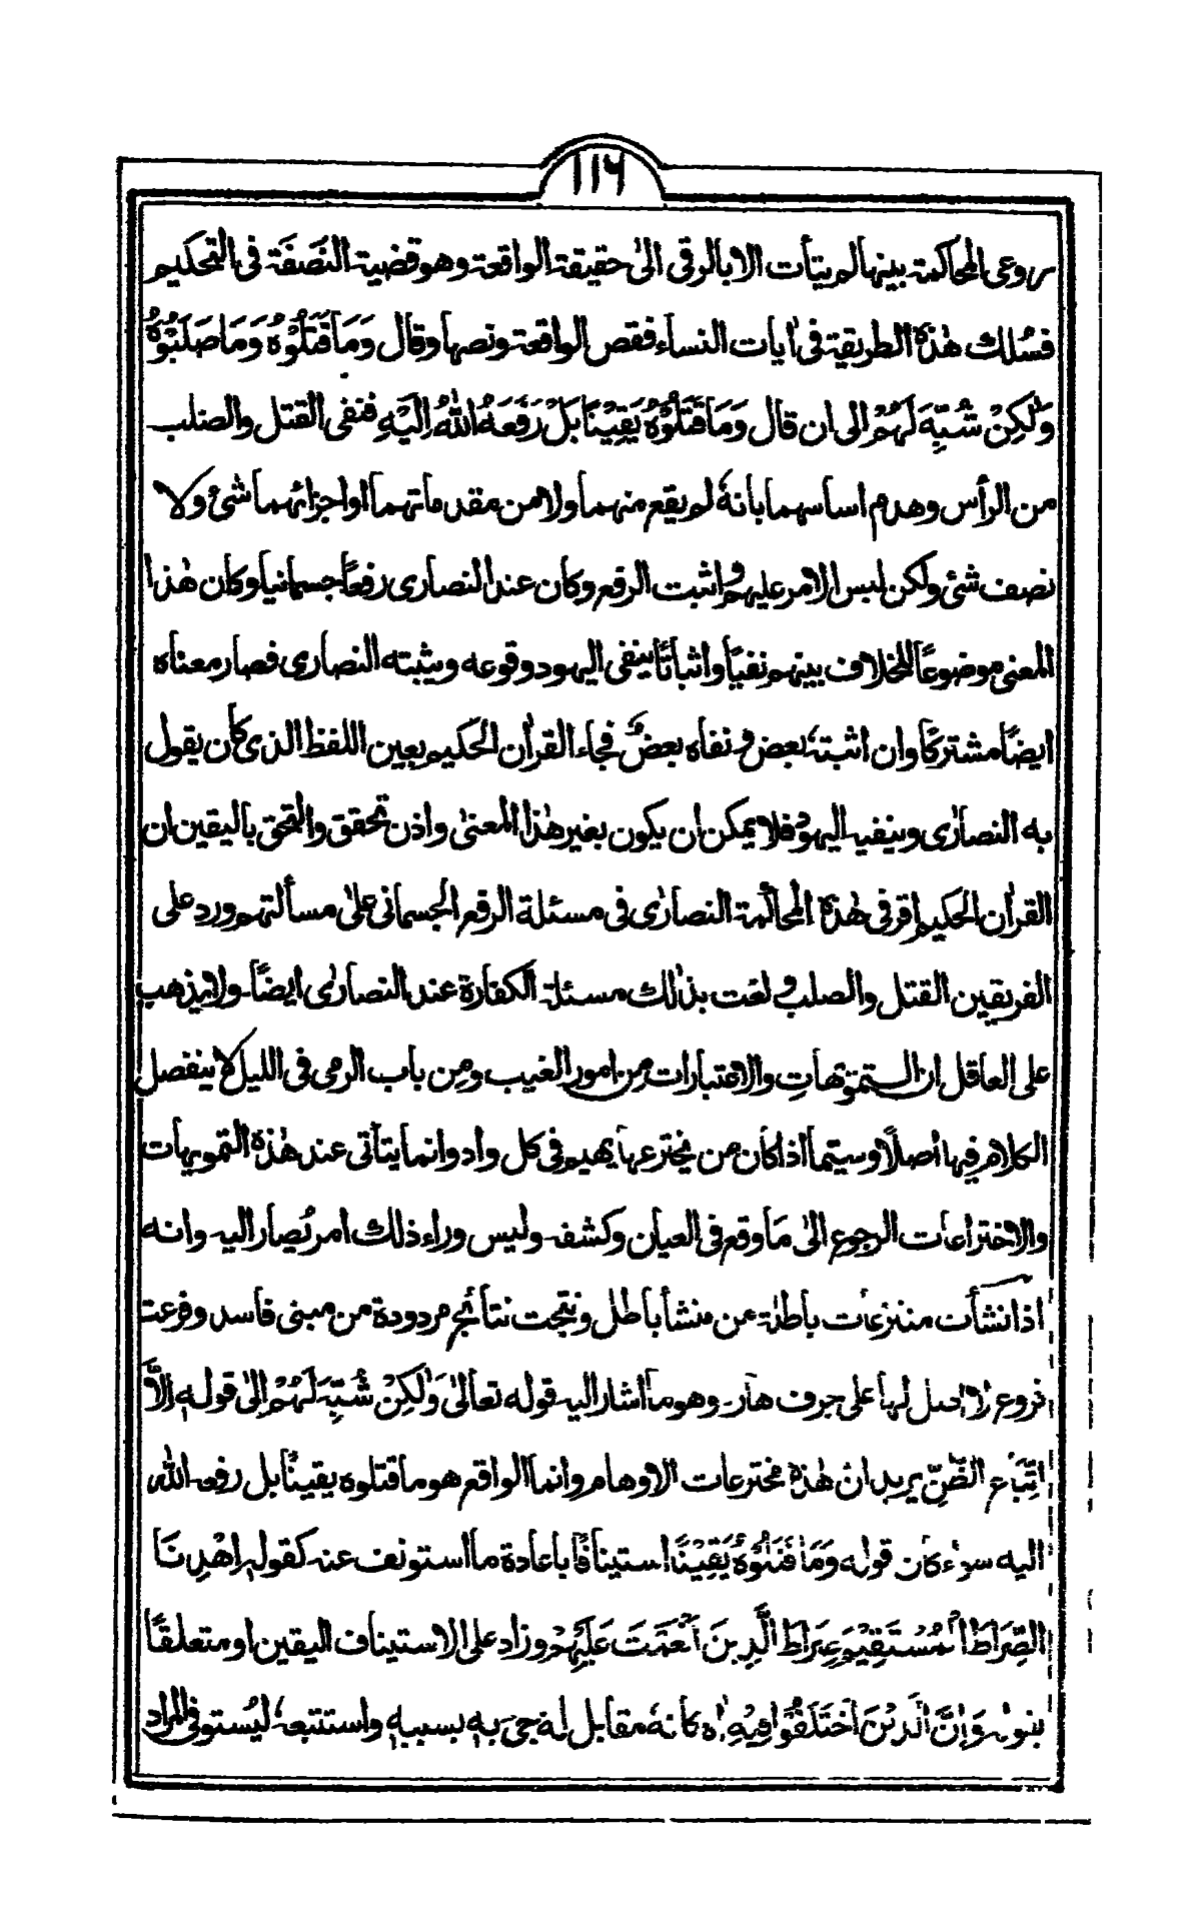 ١١٦
روعى المحاكمة بينها لم يتأت الا بالرقى الىٰ حقيقة الواقعة وهو قضية النَصَفَة فى التحكيم
فسُلك هٰذه الطريقة فى اٰيات النساء فقص الواقعة ونصها وقال وَمَا قَتَلُوْهُ وَمَا صَلَبُوْهُ
وَلٰكِنْ شُبِّهَ لَهُمْ الى ان قال وَمَا قَتَلُوْهُ يَقِيْنًا بَلْ رَفَعَهُ اللّٰهُ اِلَيْهِ فنفى القتل والصلب
من الرأس وهدم اساسهما بانهٗ لم يقع منهما ولا من مقدماتهما او اجزائهما شئ ولا
نصف شئ ولكن لبس الامر عليهم و اثبت الرفع وكان عند النصارى رفعًا جسمانيا وكان هٰذا
المعنى موضوعًا للخلاف بينهم نفيًا واثباتًا ينفى اليهود وقوعه ويثبته النصارى فصار معناه
ايضًا مشتركًا وان اثبتهٗ بعض و نفاه بعضٌ فجاء القراٰن الحكيم بعين اللفظ الذى كان يقول
به النصارٰى وينفيه اليهود فلا يمكن ان يكون بغير هٰذا المعنىٰ واذن تحقق والتحق باليقين ان
القراٰن الحكيم اقر فى هٰذه المحاكمة النصارٰى فى مسئلة الرفع الجسمانى علىٰ مسألتهم ورد على
الفريقين القتل والصلب و لغت بذٰلك مسئلة الكفارة عند النصارٰى ايضًا۔ ولا يذهب
على العاقل ان التموّهاتِ والاعتبارات مِن امور الغيب ومِن باب الرمى فى الليل لا ينفصل
الكلام فيها اصلًا وسيّما اذا كان من يخترعها يهيم فى كل واد وانما يتأتى عند هٰذه التمويهات
والاختراعات الرجوع الىٰ مَا وقع فى العيان وكشفه وليس وراء ذلك امر يُصار اليه وانه
اذا نشأت منتزعات باطلة عن منشأ باطل ونتجت نتائج مردودة من مبنى فاسد وفرعت
فروع لا اصل لها على جرف هار۔ وهو ما اشار اليه قوله تعالىٰ وَلٰكِنْ شُبِّهَ لَهُمْ اِلىٰ قوله اِلَّا
اتِّبَاعَ الظَّنِّ يريد ان هٰذه مخترعات الاوهام وانما الواقع هو ما قتلوه يقينًا بل رفعه اللّٰه
اليه سواء كان قوله وَمَا قَتَلُوْهُ يَقِيْنًا استينافًا باعادة ما استونف عنه كقوله اِهْدِنَا
الصِّرَاطَ الْمُسْتَقِيْمَ صِرَاطَ الَّذِيْنَ اَنْعَمْتَ عَلَيْهِمْ وزاد على الاستيناف اليقين او متعلقًا
بقوله وَاِنَّ الَّذِيْنَ اخْتَلَفُوْا فِيْهِ اه كانهٗ مقابل له جئ به بسببه واستتبعهٗ ليُستوفى المراد